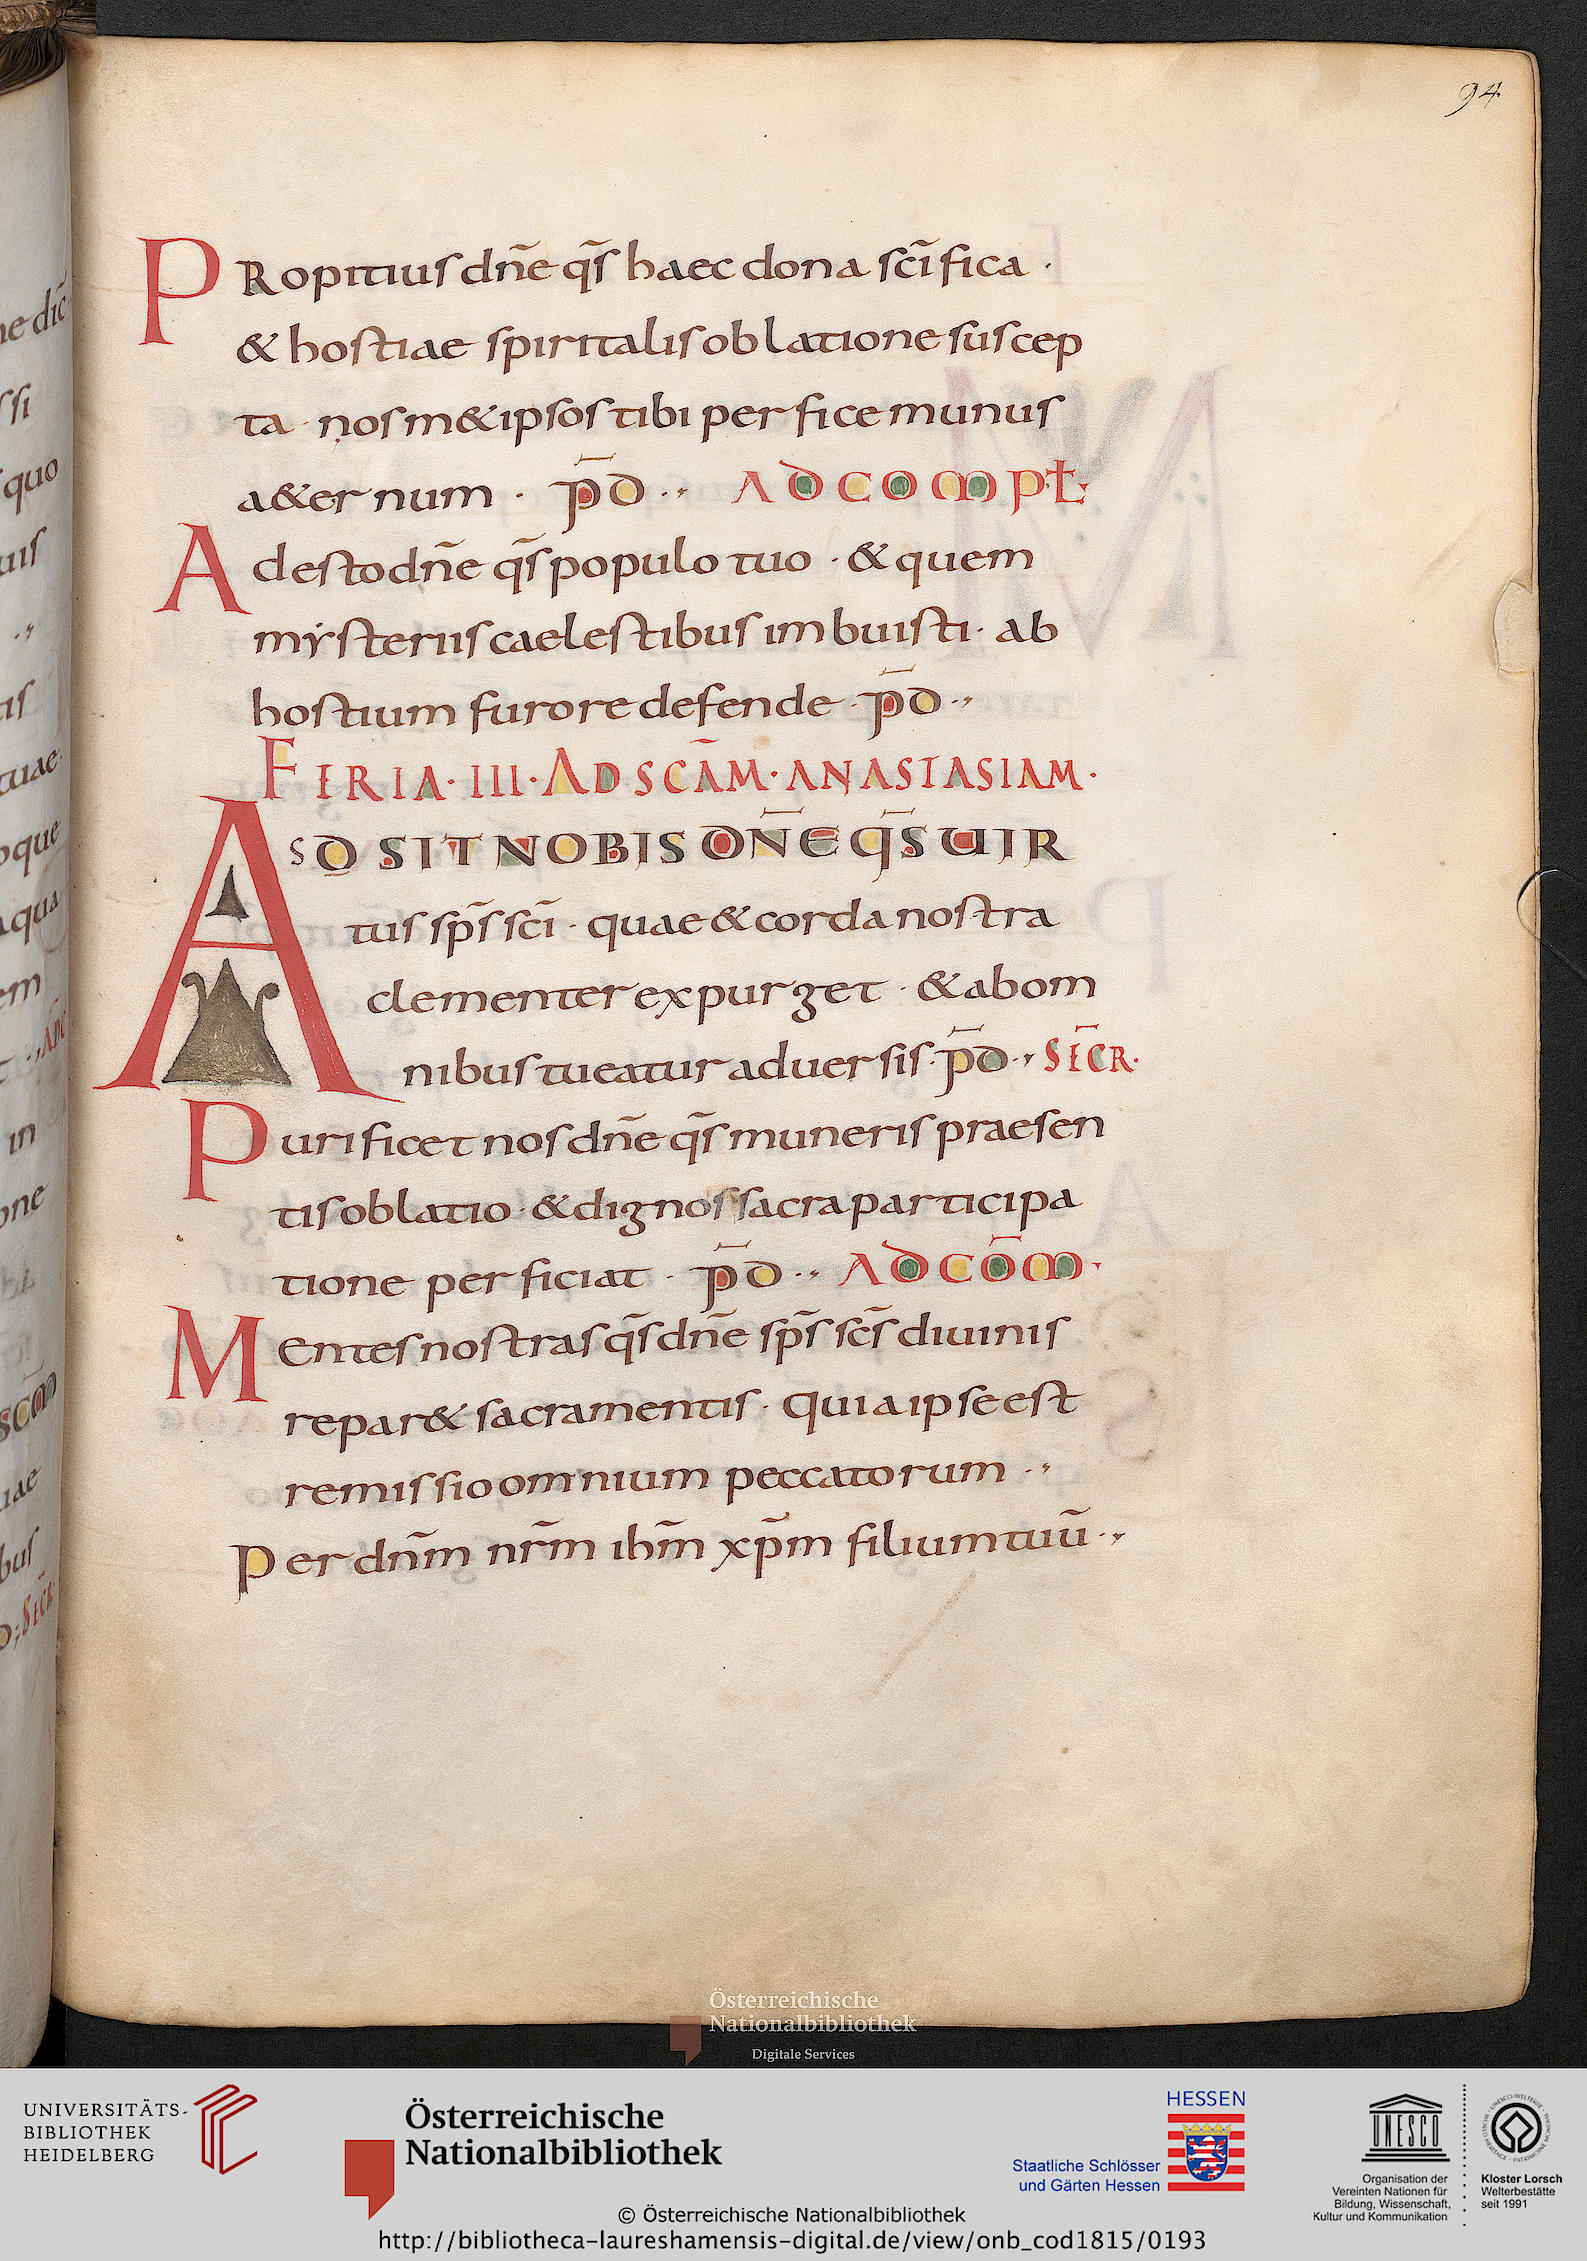 94
PRopitius dñe q̄s haec dona sc̄ifica ·
& hostiae spiritalis oblatione suscep
ta · nosm&ipsos tibi perfice munus
a&ernum · p̄d ·,, AD COMPŁ·
Adesto dñe q̄s populo tuo · & quem
mysteriis caelestibus imbuisti · ab
hostium furore defende · p̄d ·,,
FERIA · III · AD SC̄AM · ANASTASIAM ·
ASD SIT NOBIS DÑE Q̄S UIR
tus sp̄s sc̄i · quae & corda nostra
clementer expurget · & ab om
nibus tueatur aduersis · p̄d ·, SEC̄R ·
Purificet nos dñe q̄s muneris praesen
tis oblatio · & dignos sacra participa
tione perficiat · p̄d ·,, AD CŌM ·
Mentes nostras q̄s dñe sp̄s sc̄s diuinis
repar& sacramentis · quia ipse est
remissio omnium peccatorum ·,
Per dñm nr̄m ih̄m xp̄m filium tuū ·,
Österreichische
Nationalbibliothek
Digitale Services
UNIVERSITÄTS-
BIBLIOTHEK
HEIDELBERG
Österreichische
Nationalbibliothek
HESSEN
Staatliche Schlösser
und Gärten Hessen
UNESCO
Organisation der
Vereinten Nationen für
Bildung, Wissenschaft,
Kultur und Kommunikation
Kloster Lorsch
Welterbestätte
seit 1991
© Österreichische Nationalbibliothek
http://bibliotheca-laureshamensis-digital.de/view/onb_cod1815/0193